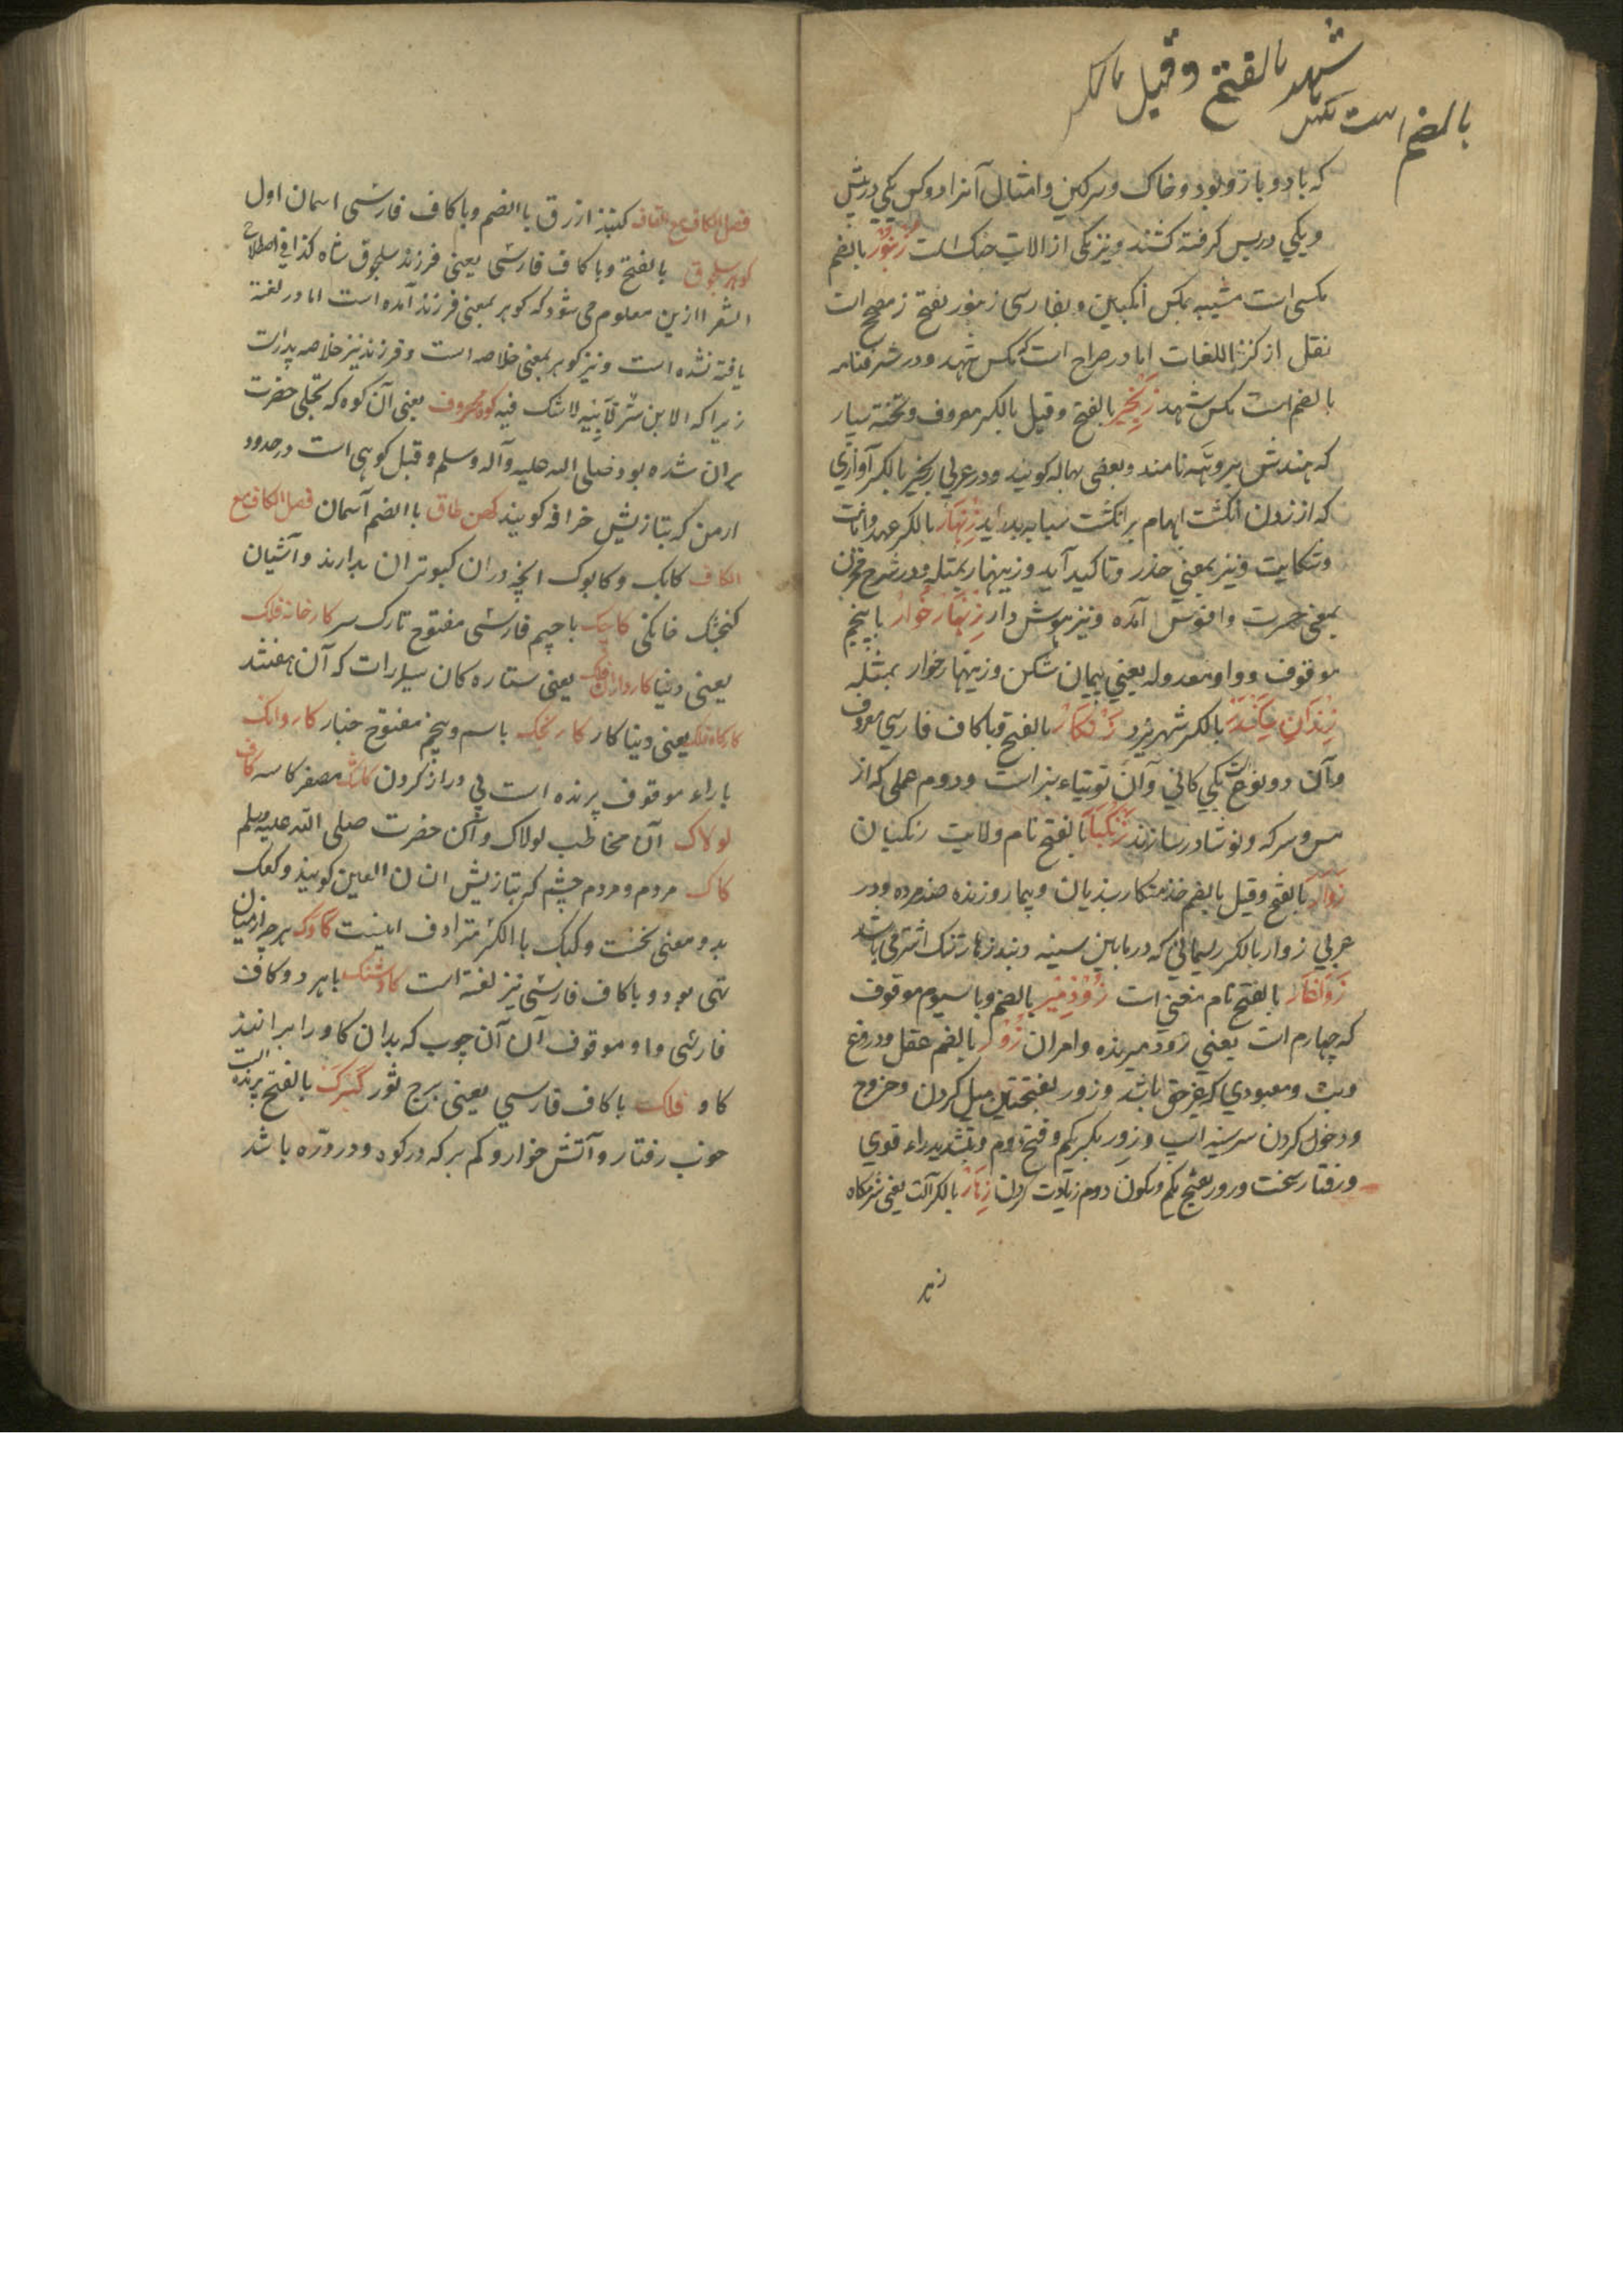 شهد بالفتح وقیل بالکسر
بالضم است مکس
که باد و باز و بود و خاک و سرکین و امثال آنرا دو کس یکی در پیش
و یکی در پس کرفته کشند و نیز یکی از الات جنک است زنبور بالضم
مکسی است مشبیه بمکس انکبین و بفارسی زنبور بفتح ز مصحح است
نقل از کنز اللغات اما در صراح است که مکس شهد و در شرفنامه
بالضم است مکس شهد زنجیر بالفتح وقیل بالکسر معروف و تخته
که هندش نامند و بعضی بهاله کویند و در عربی زنجیر بالکسر آوازی
که از زدن انکشت ابهام بر انکشت سبابه بدر اید زنهار بالکسر عهد و امانت
و شکایت و نیز بمعنی حذر و تاکید آید و زینهار بمثله و در شرح مخزن
بمعنی حسرت و افسوس آمده و نیز هوش دار زنهار خوار با پنجم
موقوف و واو معدوله یعنی پیمان شکن و زینهار خوار بمثله
زندان سکندر بالکسر شهر یزد زنکار بالفتح و با کاف فارسی معروف
و آن دو نوع است یکی کانی و آن توتیاء سبز است و دوم عملی که از
مس و سرکه و نوشادر سازند زنکبار بالفتح نام ولایت زنکیان
زوار بالفتح وقیل بالضم خدمتکار بندیان و بیمار و زنده ضد مرده و در
عربی زوار بالکسر ریسمانی که درمابین سینه و بند زهار تنک اشتر می باشد
بالفتح نام مغنی است زودمیر بالضم و با سیوم موقوف
که چهارم است یعنی زود میرنده و امران زور بالضم عقل و دروغ
و بت و معبودی که بغیر حق باشد و زور بفتحتین میل کردن و خروج
و دخول کردن سر سینه اسپ و زور بکسر یکم و فتح دوم و بتشدید راء قوی
و رفتار سخت و زور بفتح یکم و سکون دوم زیارت کردن زهار بالکسر آلت یعنی شرمکاه
زهر
فصل الکاف مع القاف کنبذ ازرق باالضم و با کاف فارسی اسمان اول
کوهر سلجوق بالفتح و با کاف فارسی یعنی فرزند سلجوق شاه کذا فی اصطلاح
الشعرا ازین معلوم می شود که کوهر بمعنی فرزند آمده است اما در لغت
یافته نشده است و نیز کوهر بمعنی خلاصه است و فرزند نیز خلاصه پدرات
زیرا که الابن سر لابیه لاشک فیه کوه معروف یعنی آن کوه که تجلی حضرت
بران شده بود صلی الله علیه و آله وسلم و قیل کوهی است در حدود
ارمن که بتازیش خرافه کویند کهن طاق باالضم آسمان فصل الکاف مع
الکاف کابک و کابوک انچه دران کبوتران بدارند و آشیان
کنجشک خانکی کاچک با چیم فارسی مفتوح تارک سر کارخانه فلک
یعنی دنیا کارداران فلک یعنی ستاره کان سیارات که آن هفتند
کارکاه فلک یعنی دنیا کار کارنجک باسم و پنجم مفتوح خیار کاروانک
با راء موقوف پرنده است پی دراز کردن کاسک مصغر کاسه کاف
لولاک آن مخاطب لولاک و آن حضرت صلی الله علیه وسلم
کاک مردم و مردم چشم که بتازیش انسان العین کویند و کعک
بدو معنی نخست و کیک باالکسر مترادف اینست کاوک هر چه از میان
تهی بود و با کاف فارسی نیز لغت است کاوشنک با هر دو کاف
فارسی و او موقوف آن آن چوب که بدان کاو را برانند
کاو فلک با کاف فارسی یعنی برج ثور کبک بالفتح پرنده است
خوب رفتار و آتش خوار و کم برکه در کوه و در دره باشد